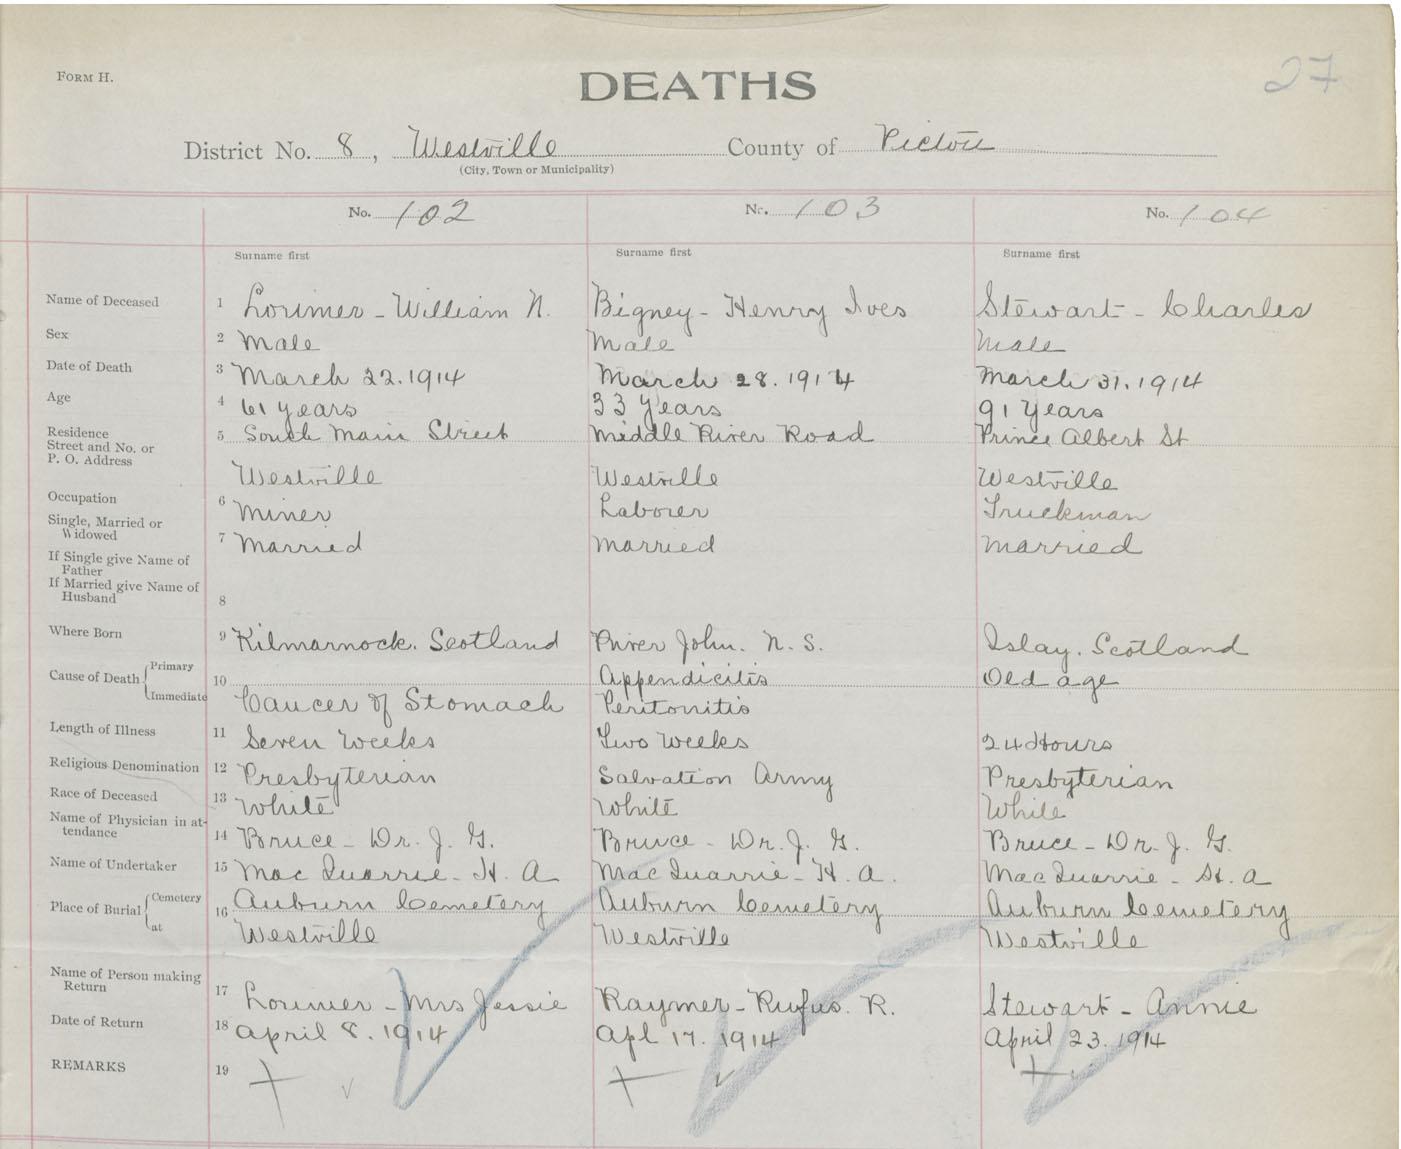 27
FORM H.
DEATHS
District No. 8, Westville County of Pictou
(City, Town or Municipality)
No. 102 No. 103 No. 104
Surname first Surname first Surname first
Name of Deceased 1 Lorimer - William N. Bigney - Henry Ives Stewart - Charles
Sex 2 Male Male Male
Date of Death 3 March 22. 1914 March 28. 1914 March 31. 1914
Age 4 61 years 33 Years 91 Years
Residence
Street and No. or 5 South Main Street Middle River Road Prince Albert St
P. O. Address
Westville Westville Westville
Occupation 6 Miner Laborer Truckman
Single, Married or
Widowed 7 Married Married Married
If Single give Name of
Father
If Married give Name of
Husband 8
Where Born 9 Kilmarnock. Scotland River John. N. S. Islay. Scotland
Cause of Death Primary 10 Appendicitis Old age
Immediate Cancer of Stomach Peritonitis
Length of Illness 11 Seven Weeks Two Weeks 24 Hours
Religious Denomination 12 Presbyterian Salvation Army Presbyterian
Race of Deceased 13 White White White
Name of Physician in at-
tendance 14 Bruce - Dr. J. G. Bruce - Dr. J. G. Bruce - Dr. J. G.
Name of Undertaker 15 MacQuarrie - H. A MacQuarrie - H. A. MacQuarrie - H. A
Place of Burial Cemetery 16 Auburn Cemetery Auburn Cemetery Auburn Cemetery
at Westville Westville Westville
Name of Person making
Return 17 Lorimer - Mrs Jessie Raymer - Rufus. R. Stewart - Annie
Date of Return 18 April 8. 1914 Apl 17. 1914 April 23. 1914
REMARKS 19